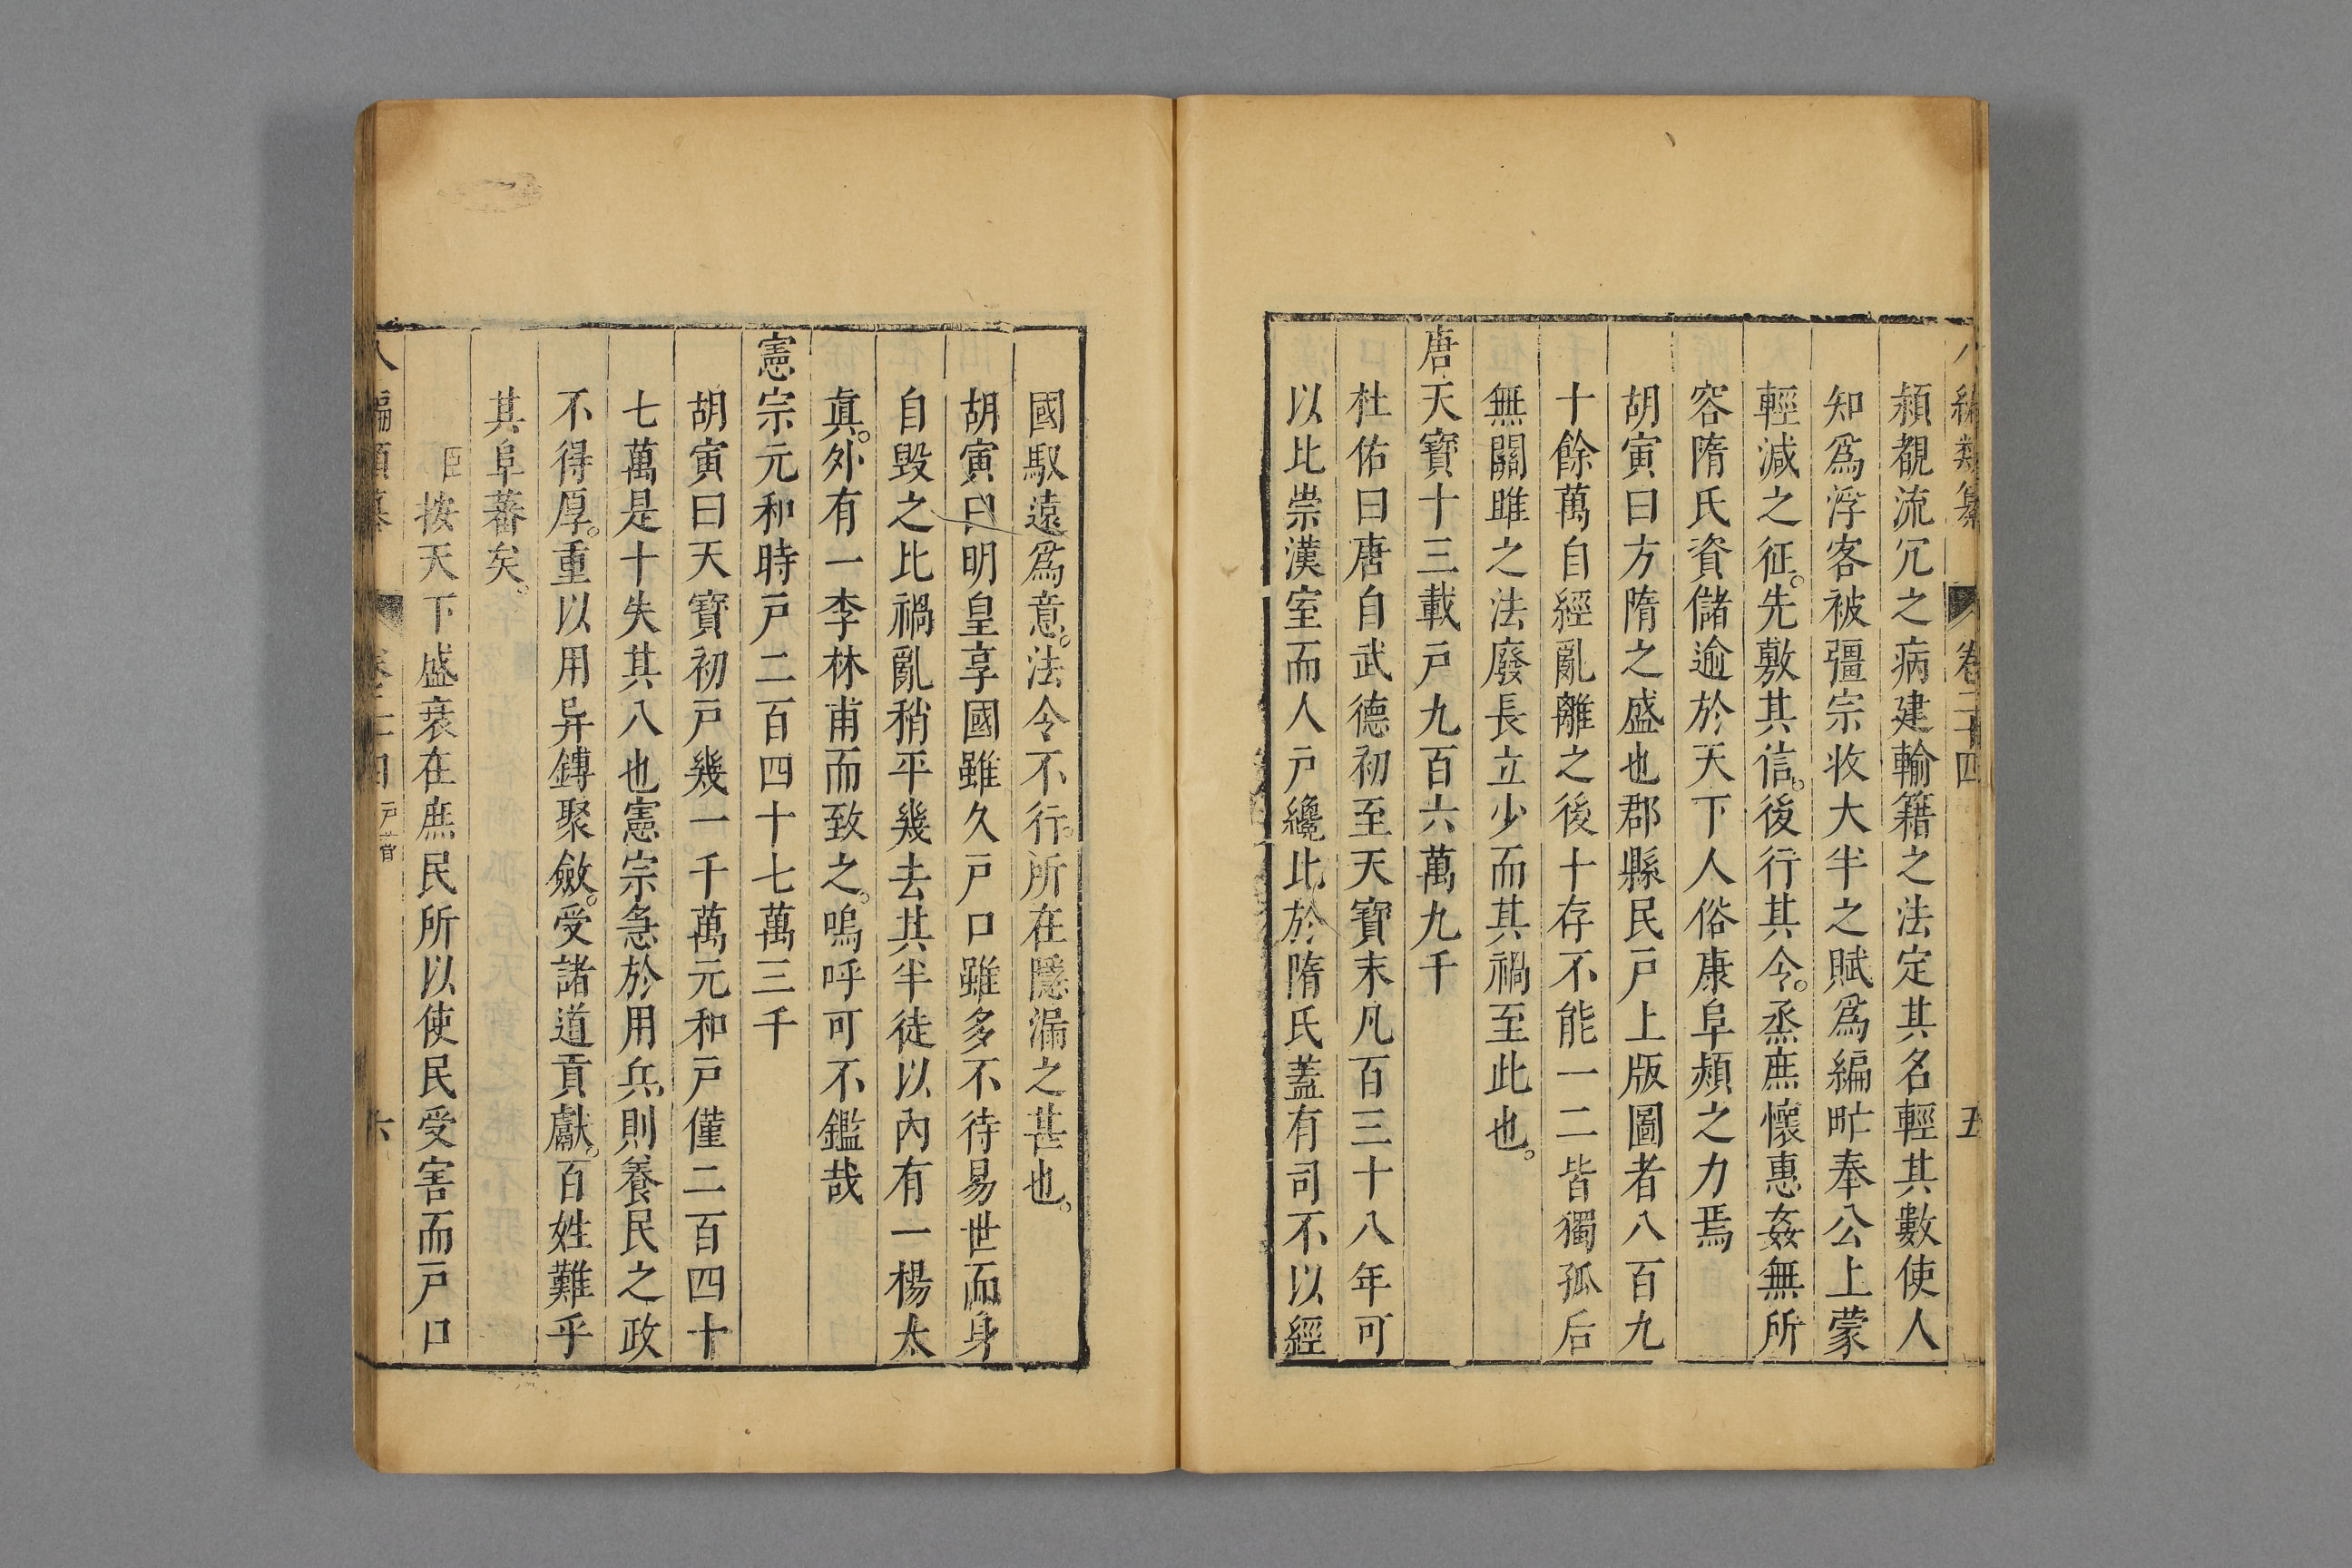 八編類纂 卷二十四 五
頴覩流冗之病建輸籍之法定其名輕其數使人
知爲浮客被彊宗收大半之賦爲編甿奉公上蒙
輕減之征。先敷其信。後行其令。烝庶懷惠姦無所
容隋氏資儲逾於天下人俗康阜頴之力焉
胡寅曰方隋之盛也郡縣民戸上版圖者八百九
十餘萬自經亂離之後十存不能一二皆獨孤后
無關雎之法廢長立少而其禍至此也。
唐天寶十三載戸九百六萬九千
杜佑曰唐自武德初至天寶末凡百三十八年可
以比崇漢室而人戸纔比於隋氏蓋有司不以經
國馭遠爲意。法令不行。所在隱漏之甚也。
胡寅曰明皇享國雖久戸口雖多不待易世而身
自毁之比禍亂稍平幾去其半徒以內有一楊太
眞。外有一李林甫而致之。嗚呼可不鑑哉
憲宗元和時戸二百四十七萬三千
胡寅曰天寶初戸幾一千萬元和戸僅二百四十
七萬是十失其八也憲宗急於用兵則養民之政
不得厚。重以用异鎛聚斂。受諸道貢獻。百姓難乎
其阜蕃矣。
臣按天下盛衰在庶民所以使民受害而戸口
八編類纂 卷二十四 戸 六